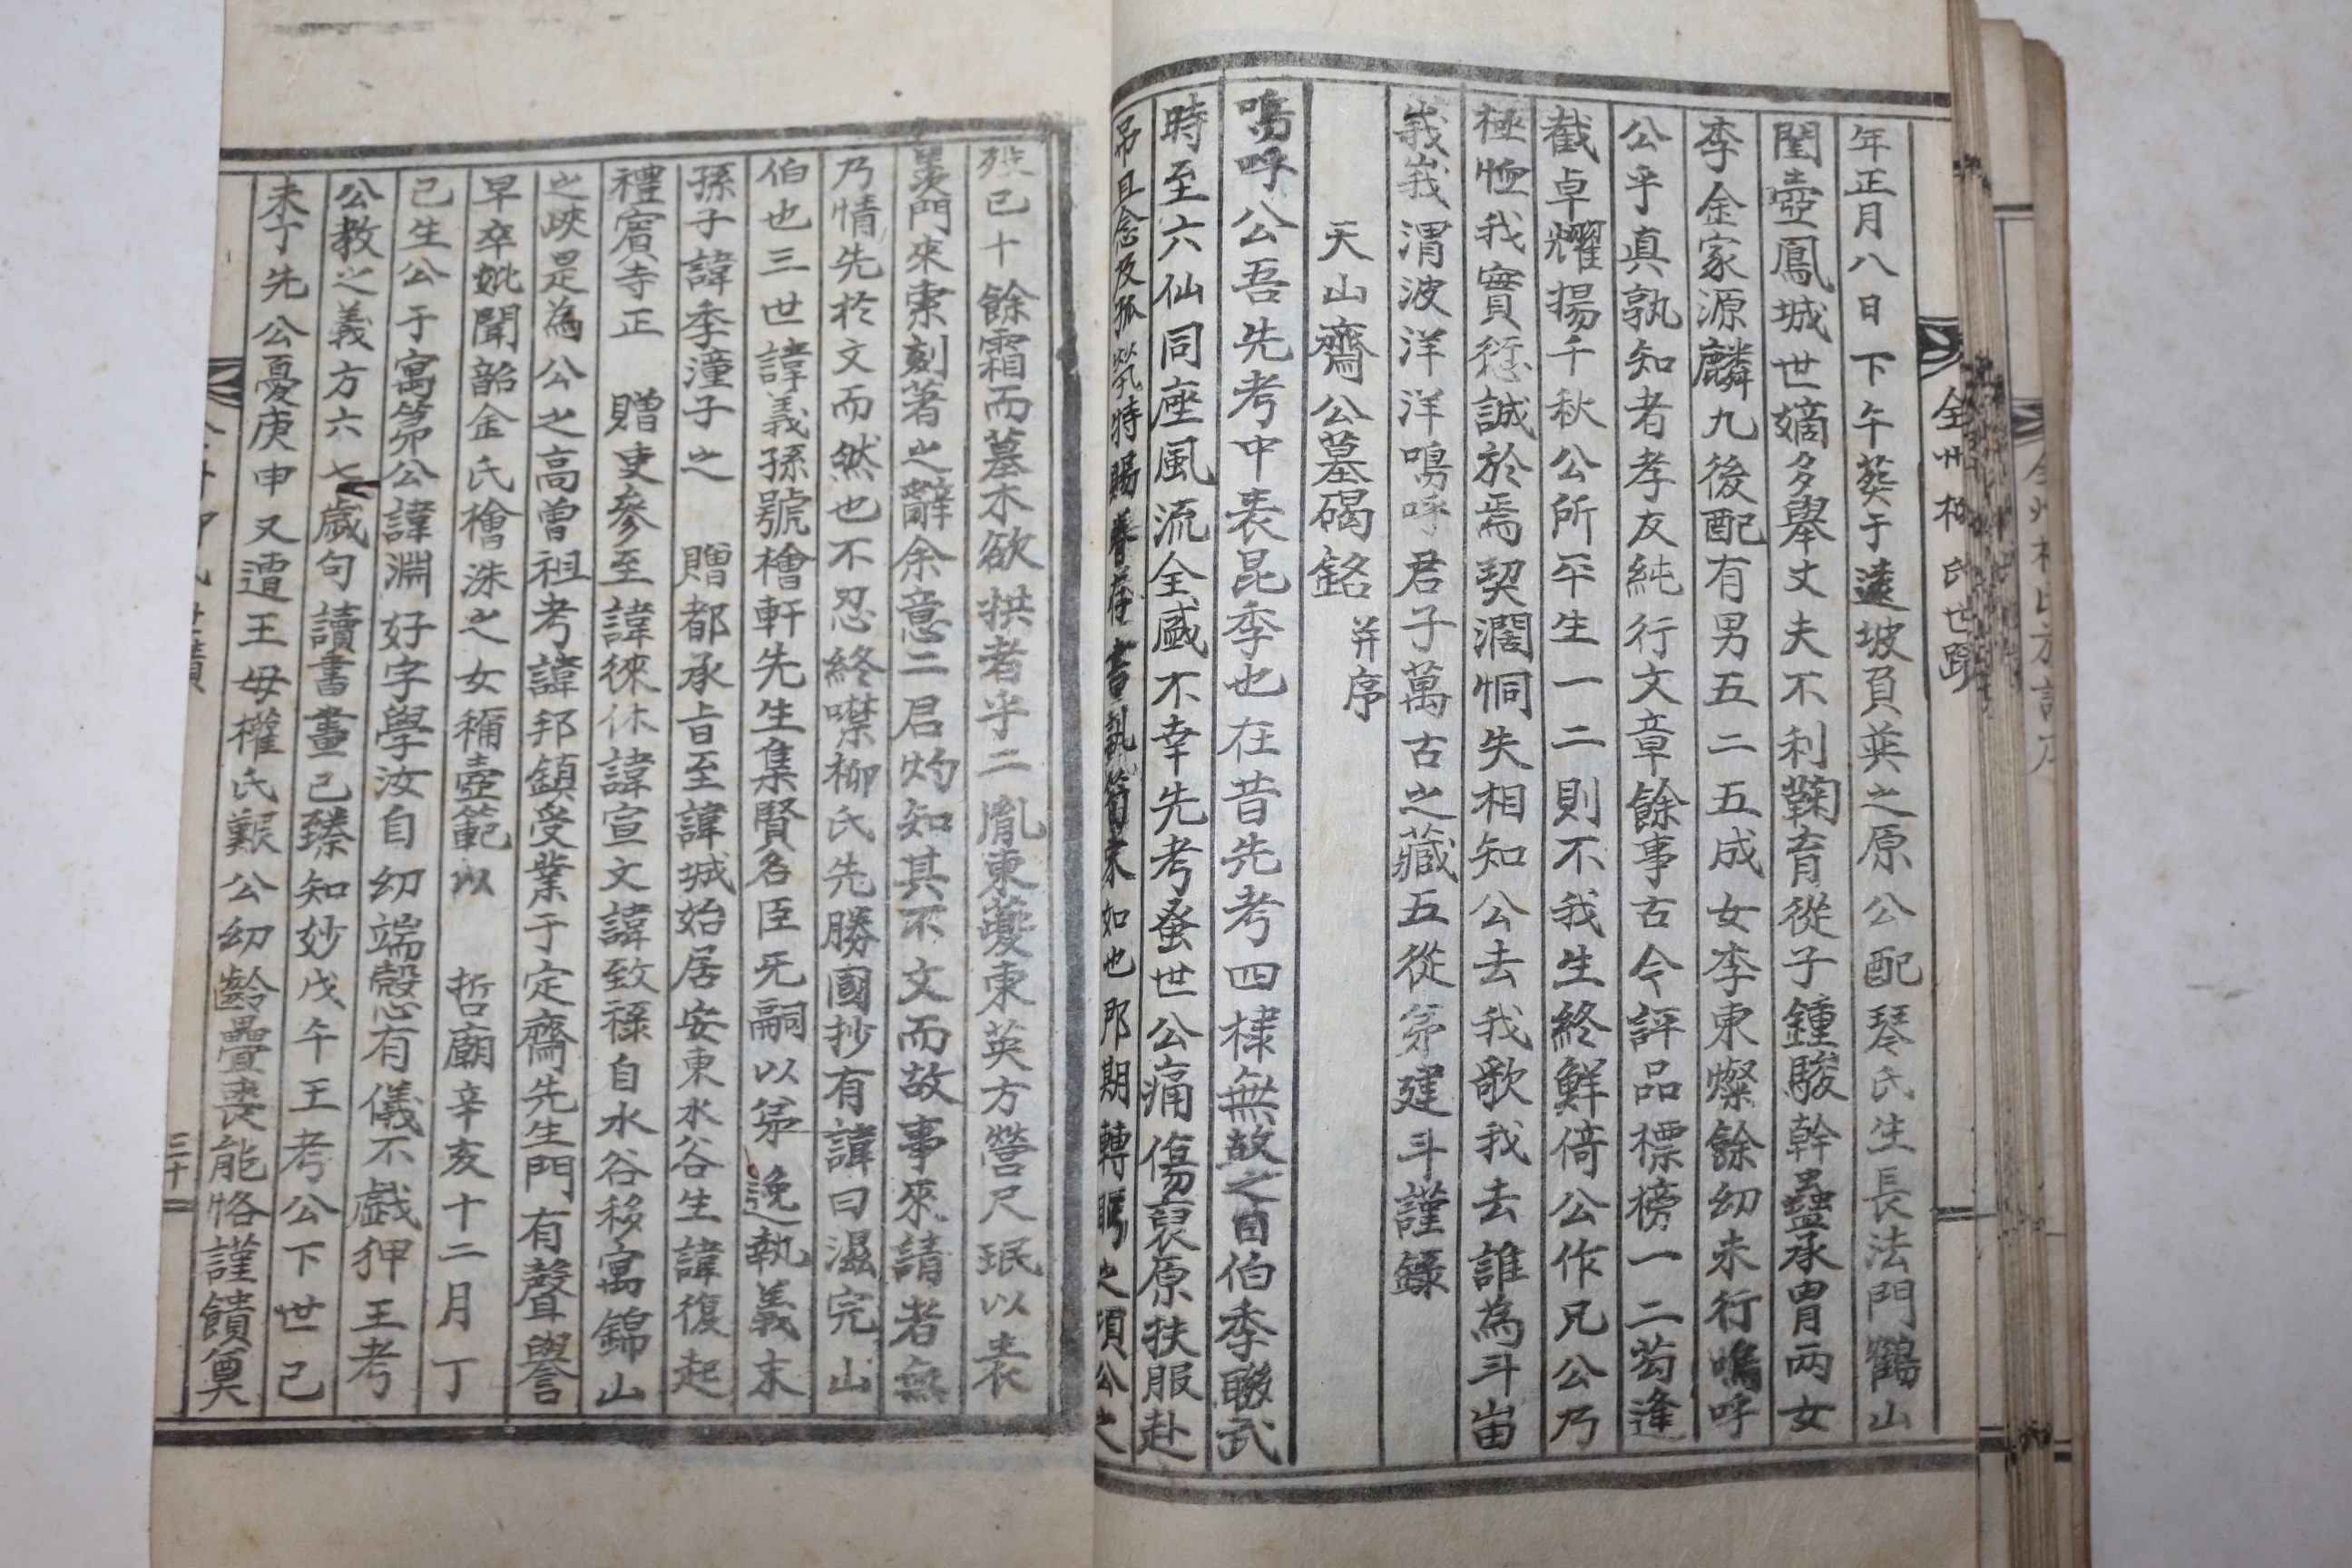 年正月八日下午葬于遠坡負㢲之原公配琴氏生長法門鶴山
閨壼鳳城世嫡多擧丈夫不利鞠育從子鍾駿幹蠱承胄兩女
李金家源麟九後配有男五二五成女李東燦餘幼未行嗚呼
公乎眞孰知者孝友純行文章餘事古今評品標榜一二芶逢
截卓耀揚千秋公所平生一二則不我生終鮮倚公作兄公乃
極恤我實愆誠於焉契濶恫失相知公去我歌我去誰為斗峀
峩峩渭波洋洋嗚呼君子萬古之藏五從弟建斗謹錄
天山齋公墓碣銘 幷序
嗚呼公吾先考中表昆季也在昔先考四棣無故之日伯季聯武
時至六仙同座風流全盛不幸先考蚤世公痛傷裒原扶服赴
吊且念及孤煢特賜眷存晝執筍來如也那期轉矚之頃公之
已十餘霜而墓木欲拱者乎二胤東蘷東英方營尺珉以表
門來索刻著之辭余意二君灼知其不文而故事來請者無
乃情先於文而然也不忍終噤柳氏先勝國抄有諱曰濕完山
伯也三世諱義孫號檜軒先生集賢名臣旡嗣以弟逸執義末
孫子諱季潼子之 贈都承旨至諱城始居安東水谷生諱復起
禮賓寺正 贈吏參至諱徠休諱宣文諱致祿自水谷移寓錦山
之峽是為公之高曾祖考諱邦鎮受業于定齋先生門有聲譽
早卒妣聞韶金氏檜洙之女稱壼範以 哲廟辛亥十二月丁
己生公于寓第公諱淵好字學汝自幼端慤有儀不戱狎王考
公敎之義方六七歲句讀書畫已臻知妙戊午王考公下世己
未丁先公憂庚申又遭王母權氏艱公幼齡疊喪能恪謹饋奠
全州柳氏世蹟
三十